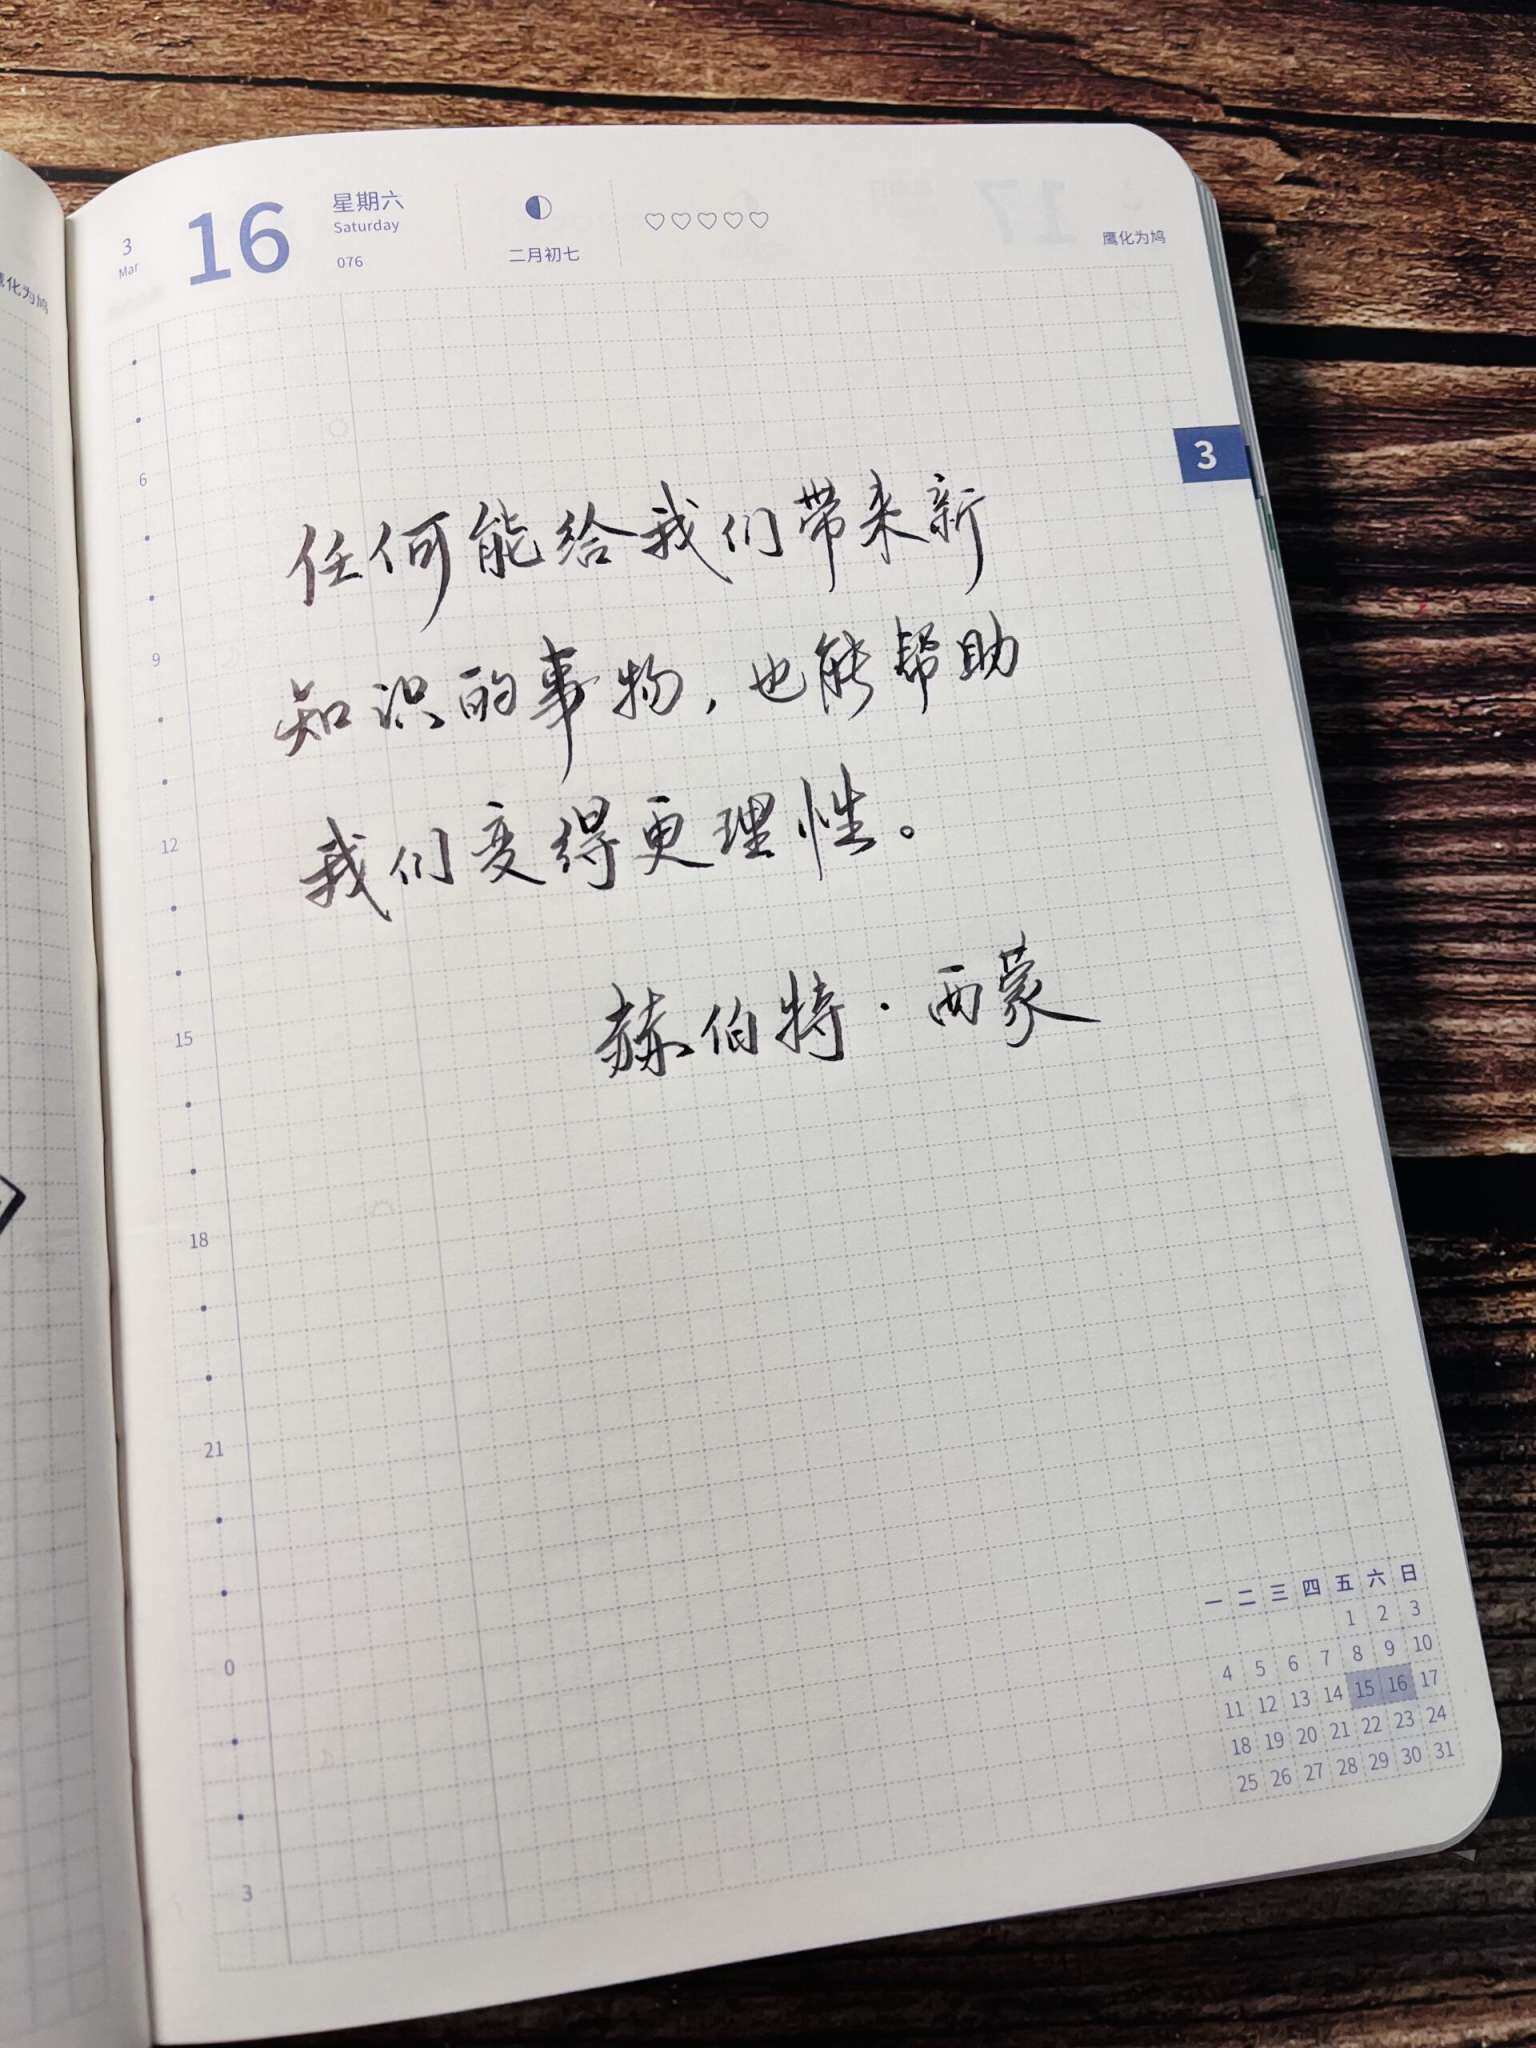 3
Mar
16
星期六
Saturday
076
二月初七
鹰化为鸠
鹰化为鸠
3
任何能给我们带来新
知识的事物,也能帮助
我们变得更理性。
赫伯特·西蒙
6
9
12
15
18
21
0
3
一 二 三 四 五 六 日
1 2 3
4 5 6 7 8 9 10
11 12 13 14 15 16 17
18 19 20 21 22 23 24
25 26 27 28 29 30 31
17